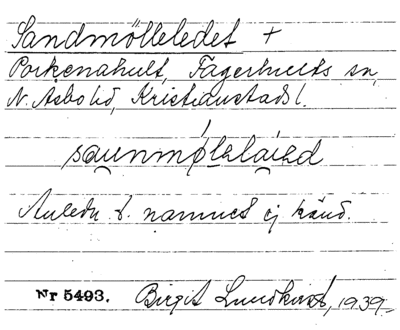 Sandmölleledet +
Porkenahult, Fagerhults sn,
N. Åsbo hd, Kristianstads l.
saunmølelaied
Anledn. t. namnet ej känd.
Nr 5493. Birgit Lundkvist, 1939